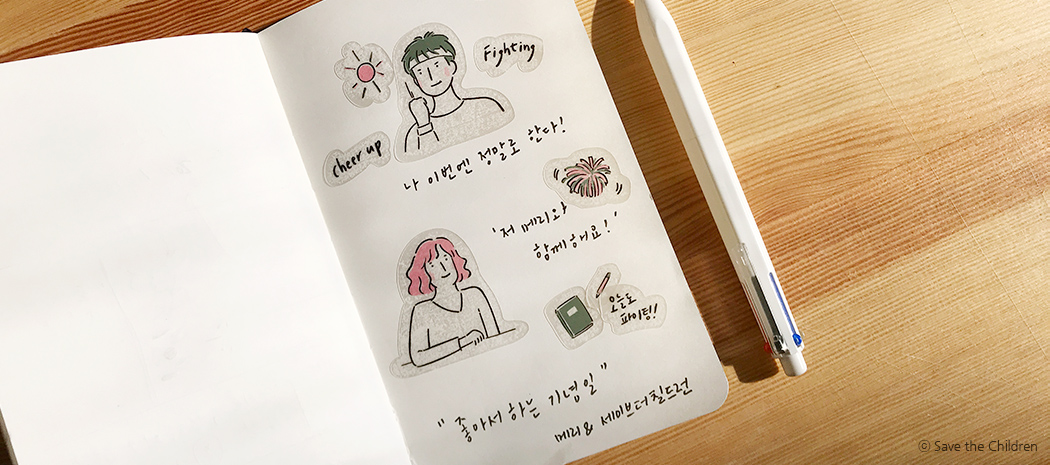 Fighting
cheer up
나 이번엔 정말로 한다!
'저 메리와
함께해요!'
오늘도
파이팅!
"좋아서 하는 기념일"
메리 & 세이브더칠드런
© Save the Children